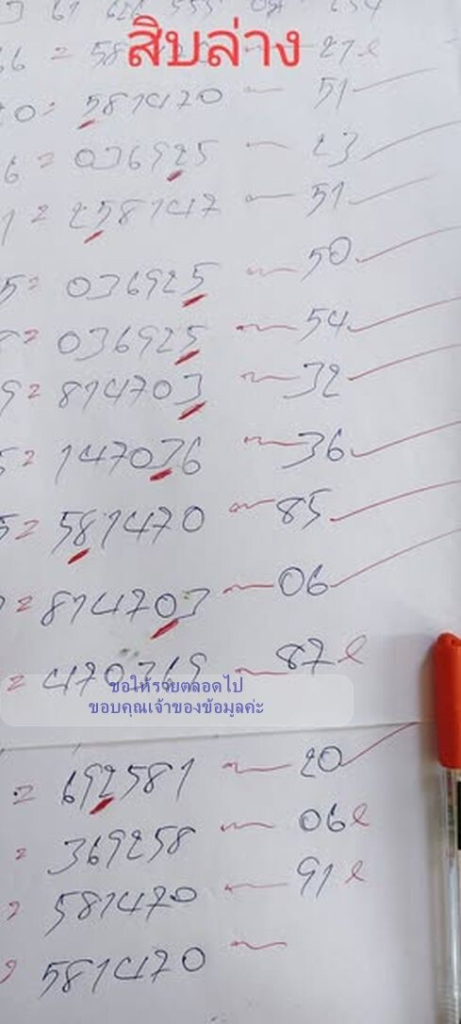 สิบล่าง
66 = 581470 ~ 27 e
20 = 581470 ~ 51
6 = 036925 ~ 23
1 = 258147 ~ 51
5 = 036925 ~ 50
8 = 036925 ~ 54
9 = 814703 ~ 32
5 = 147036 ~ 36
5 = 581470 ~ 85
= 814703 ~ 06
= 470369 ~ 87 e
ขอให้รวยตลอดไป
ขอบคุณเจ้าของข้อมูลค่ะ
= 692581 ~ 20
= 369258 ~ 06 e
= 581470 ~ 91 e
= 581470 ~